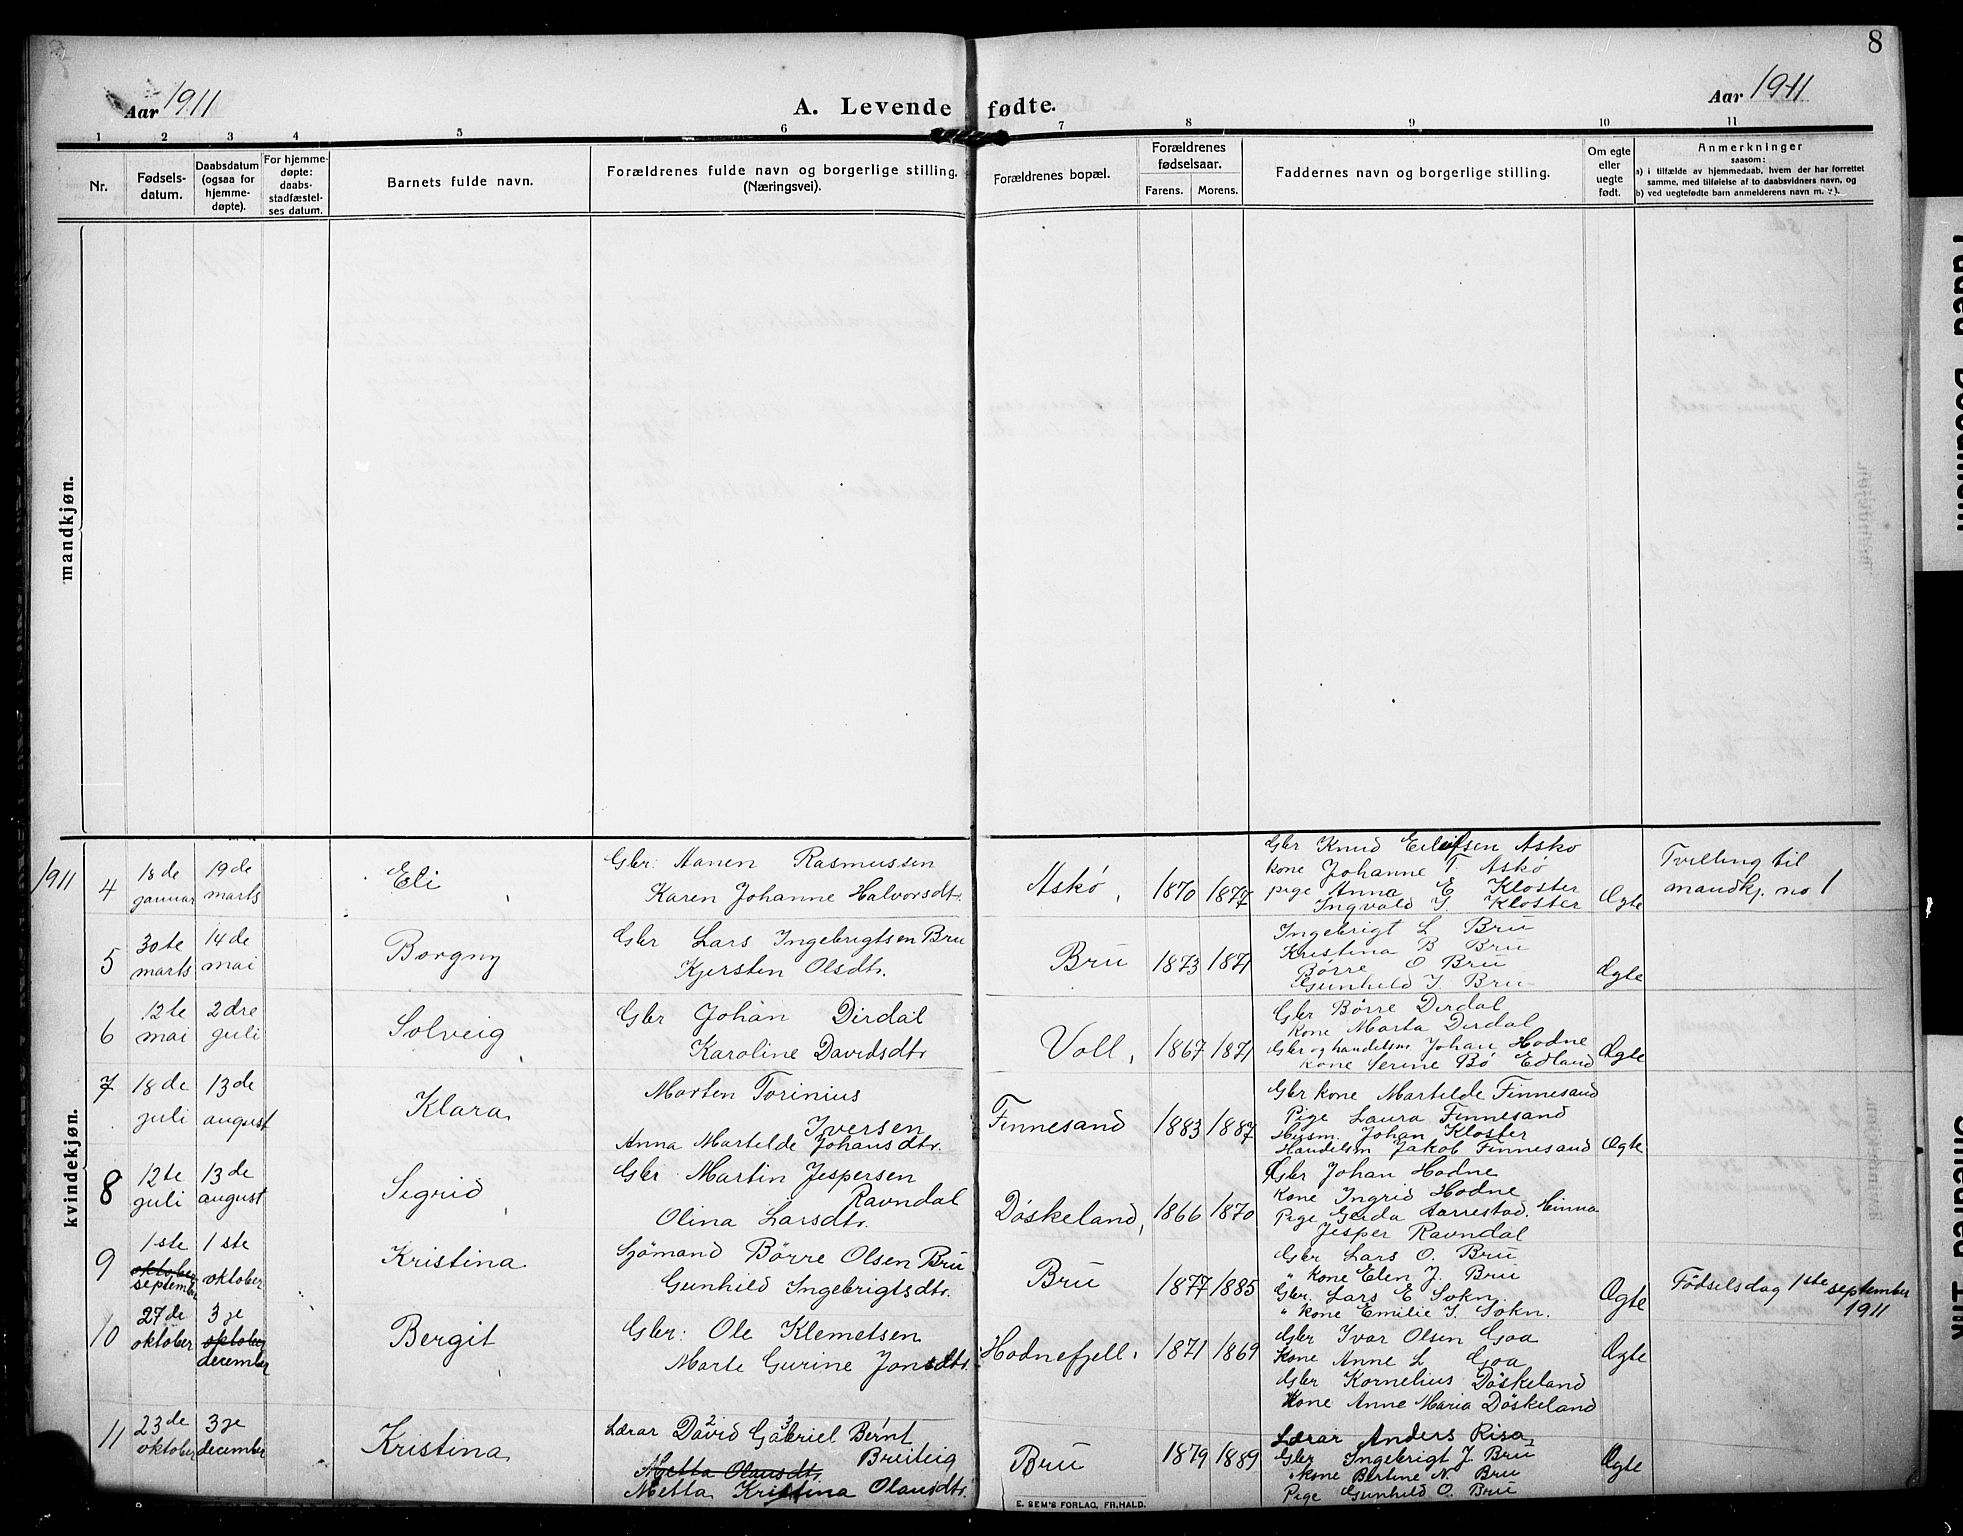 8
Aar 1911
A. Levende fødte.
Aar 1911
1 2 3 4 5 6 7 8 9 10 11
Nr.
Fødsels-
datum.
Daabsdatum
(ogsaa for
hjemme-
døpte).
For hjemme-
døpte:
daabs-
stadfæstel-
ses datum.
Barnets fulde navn.
Forældrenes fulde navn og borgerlige stilling.
(Næringsvei).
Forældrenes bopæl.
Forældrenes
fødselsaar.
Farens. Morens.
Faddernes navn og borgerlige stilling.
Om egte
eller
uegte
født.
Anmerkninger
saasom:
a) i tilfælde av hjemmedaab, hvem der har forrettet
samme, med tilføielse af to daabsvidners navn, og
b) ved uegtefødte barn anmelderens navn m. v.).
mandkjøn.
kvindekjøn.
1911
4
18de
januar
19de
marts
Eli
Gbr. Aanen Rasmussen
Karen Johanne Halvorsdtr.
Askø
1870 1877
Gbr Knud Eilefsen Askø
kone Johanne T. Askø
pige Anna E Kloster
Ingvald I. Kloster
Ægte
Tvilling til
mandkj. no 1
5
30te
marts
14de
mai
Borgny
Gbr Lars Ingebrigtsen Bru
Kjersten Olsdtr.
Bru
1873 1871
Ingebrigt L Bru
Kristina B Bru
Børre O Bru
Gunhild I. Bru
Ægte
6
12te
mai
2dre
juli
Solveig
Gbr Johan Dirdal
Karoline Davidsdtr
Voll
1867 1871
Gbr Børre Dirdal
Kone Marta Dirdal
Gbr og handelsm. Johan Hodne
Kone Serine Bø Edland
Ægte
7
18de
juli
13de
august
Klara
Morten Torinius
Iversen
Anna Martilde Johansdtr.
Finnesand
1883 1887
Gbr kone Martilde Finnesand
Pige Laura Finnesand
Husm. Johan Kloster
Handelsm Jakob Finnesand
Ægte
8
12te
juli
13de
august
Sigrid
Gbr Martin Jespersen
Ravndal
Olina Larsdtr.
Døskeland,
1866 1870
Gbr Johan Hodne
Kone Ingrid Hodne
Pige Gerda Aarrestad, Hinna
Jesper Ravndal
9
1ste
oktober
september
1ste
oktober
Kristina
Sjømand Børre Olsen Bru
Gunhild Ingebrigtsdtr.
Bru
1877 1885
Gbr Lars O. Bru
" Kone Elen J. Bru
Gbr. Lars E Sokn.
" kone Emilie I. Sokn.
Ægte
Fødselsdag 1ste september
1911
10
27de
oktober
3je
oktober
december
Bergit
Gbr: Ole Klemetsen
Marte Gurine Jonsdtr.
Hodnefjell.
1871 1869
Gbr Ivar Olsen Goa
Kone Anne L Goa
Gbr Kornelius Døskeland
Kone Anne Maria Døskeland
Ægte
11
23de
oktober
3je
december
Kristina
Lærar David 2 Gabriel 3 Bernt
Breiteig
Metta Olausdtr.
Metta Kristina Olausdtr.
Bru
1879 1889
Lærar Anders Risa
Gbr Ingebrigt J. Bru
" kone Bertine N. Bru
Pige Gunhild O. Bru
Ægte
E. SEM'S FORLAG, FR.HALD.